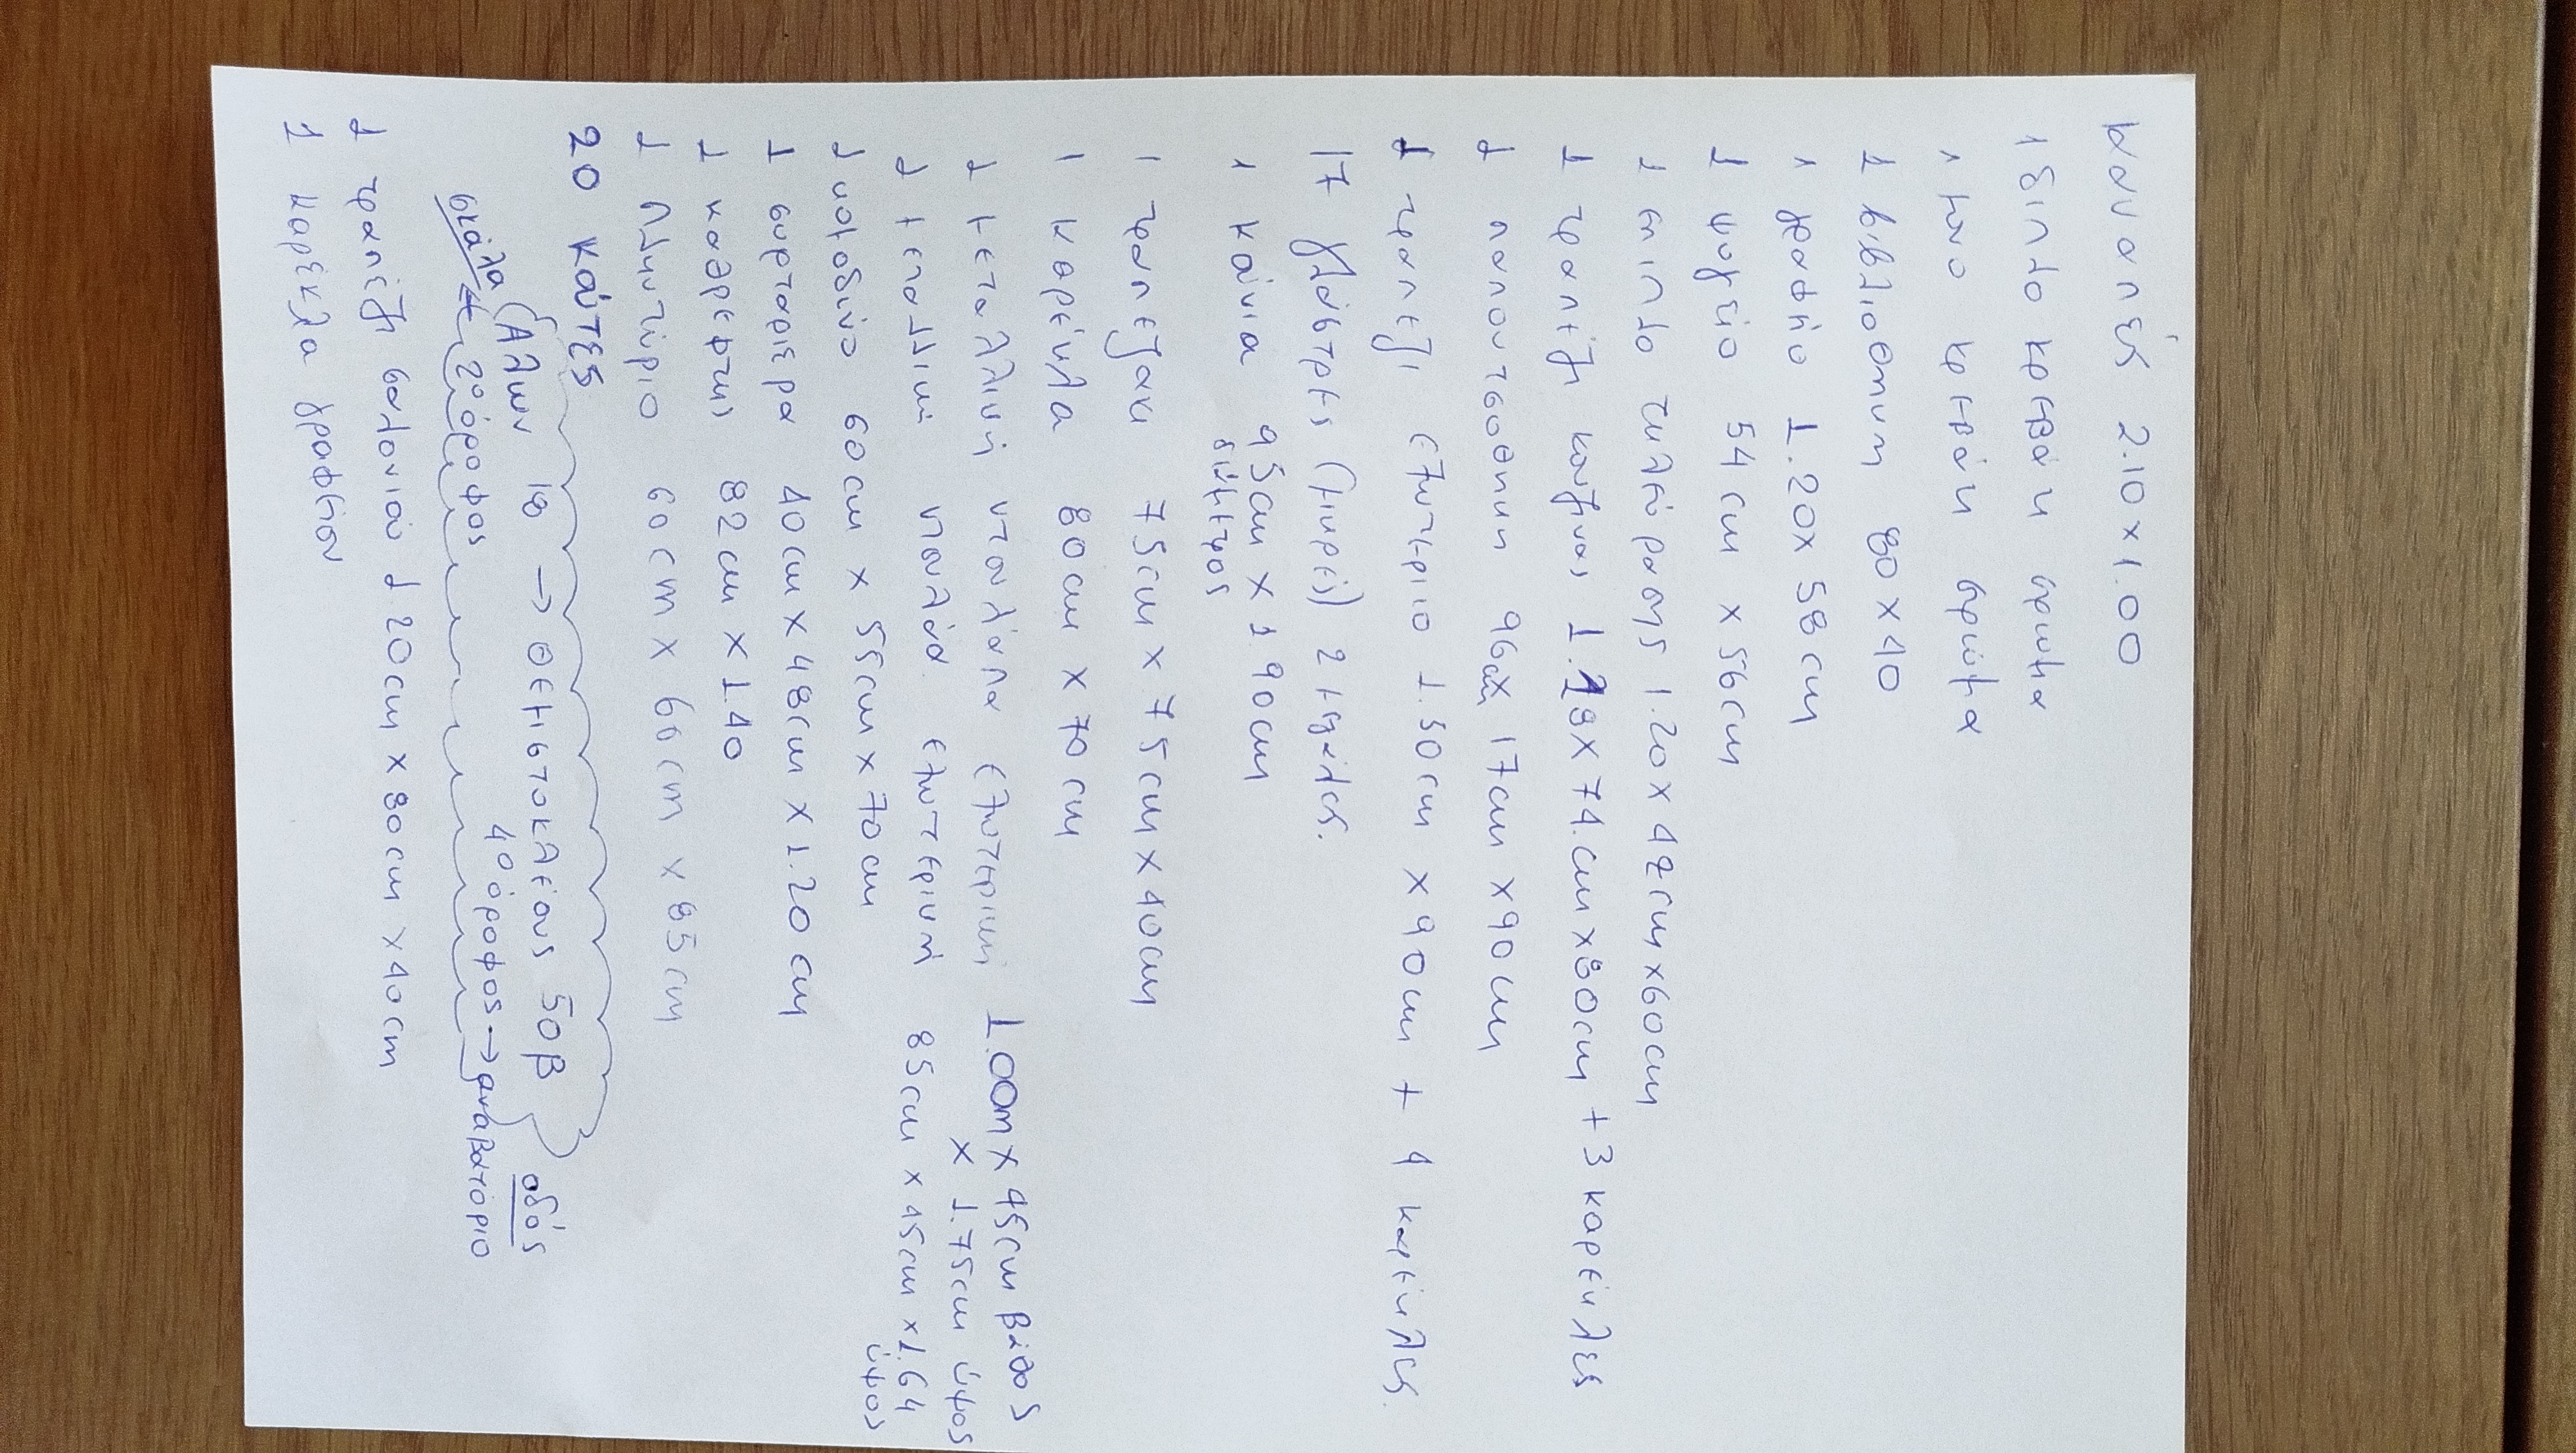 καναπές 2.10 x 1.00
1 διπλό κρεβάτι στρώμα
1 μονο κρεβάτι στρώμα
1 βιβλιοθήκη 80 x 40
1 γραφείο 1.20 x 58 cm
1 ψυγείο 54 cm x 56 cm
1 επιπλο τηλεόρασης 1.20 x 47 cm x 60 cm
1 τραπέζι κουζίνας 1.18 x 74. cm x 80 cm + 3 καρέκλες
1 παπουτσοθήκη 96 cm x 17 cm x 90 cm
1 τραπεζι εξωτεριο 1.50 cm x 90 cm + 4 καρέκλες.
17 γλάστρες (μικρές) 2 μεγάλες.
1 κούνια 95 cm x 1.90 cm
διάμετρος
1 τραπεζάκι 75 cm x 75 cm x 40 cm
1 καρέκλα 80 cm x 70 cm
1 μεταλλική ντουλάπα εξωτερική 1.00m x 45 cm βάθος
x 1.75 cm ύψος
1 μεταλλική ντουλάπα εξωτερική 85 cm x 45 cm x 1.64
ύψος
1 κομοδίνο 60 cm x 55 cm x 70 cm
1 συρταριερα 40 cm x 48 cm x 1.20 cm
1 καθρεφτης 82 cm x 1.40
1 πλυντύριο 60 cm x 60 cm x 85 cm
20 κούτες
Αλων 18 → Θεμιστοκλέους 50β οδός
σκάλα ← 2ο όροφος 4ο όροφος → αναβατόριο
1 τραπέζι σαλονιού 1.20 cm x 80 cm x 40 cm
1 καρέκλα γραφείου